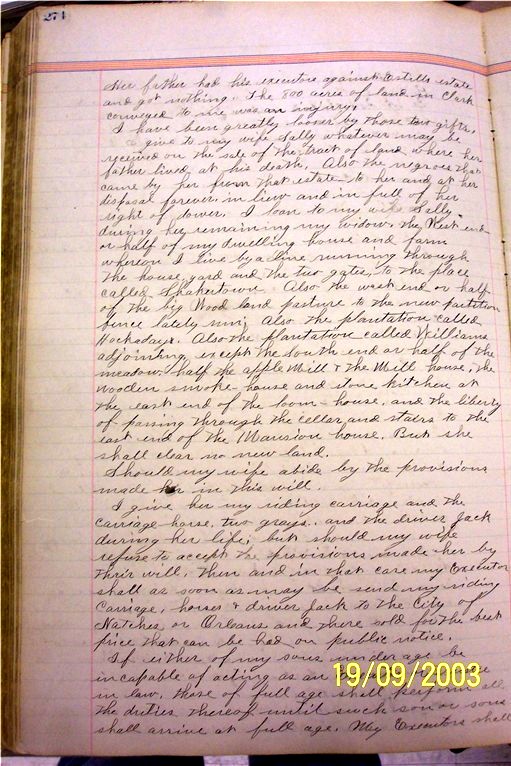 274
Her father had his executors against Estills estate
and got nothing. The 800 acres of land in Clark
conveyed to me was an injury.
I have been greatly looser by those two gifts.
I give to my wife Sally whatever may be
received on the sale of the tract of land where her
father lived at his death. Also the negroes that
came by her from that estate to her and at her
disposal forever in lieu and in full of her
right of dower. I loan to my wife Sally
during her remaining my widow, the West end
or half of my dwelling house and farm
whereon I live by a line running through
the house, yard and the two gates, to the place
called Shakertown. Also the west end or half
of the big Wood land pasture to the new partition
fence lately run; Also the plantation called
Hockadays. Also the plantation called Williams
adjoining, except the South end or half of the
meadow, half the apple Mill & the Mill house, the
wooden smoke-house and stone kitchen at
the east end of the loom-house, and the liberty
of passing through the cellar and stairs to the
east end of the Mansion house. But she
shall clear no new land.
Should my wife abide by the provisions
made her in this will.
I give her my riding carriage and the
carriage horse, two grays.. and the driver Jack
during her life; but should my wife
refuse to accept the provisions made her by
their will, then and in that care my Executor
shall as soon as may be send my riding
carriage, horses & driver Jack to the City of
Natches or Orleans and there sold for the best
price that can be had on public notice.
If either of my sons under age be
incapable of acting as an
in law, those of full age shall perform all
the duties thereof until such son or sons
shall arrive at full age. My Executors shall
19/09/2003